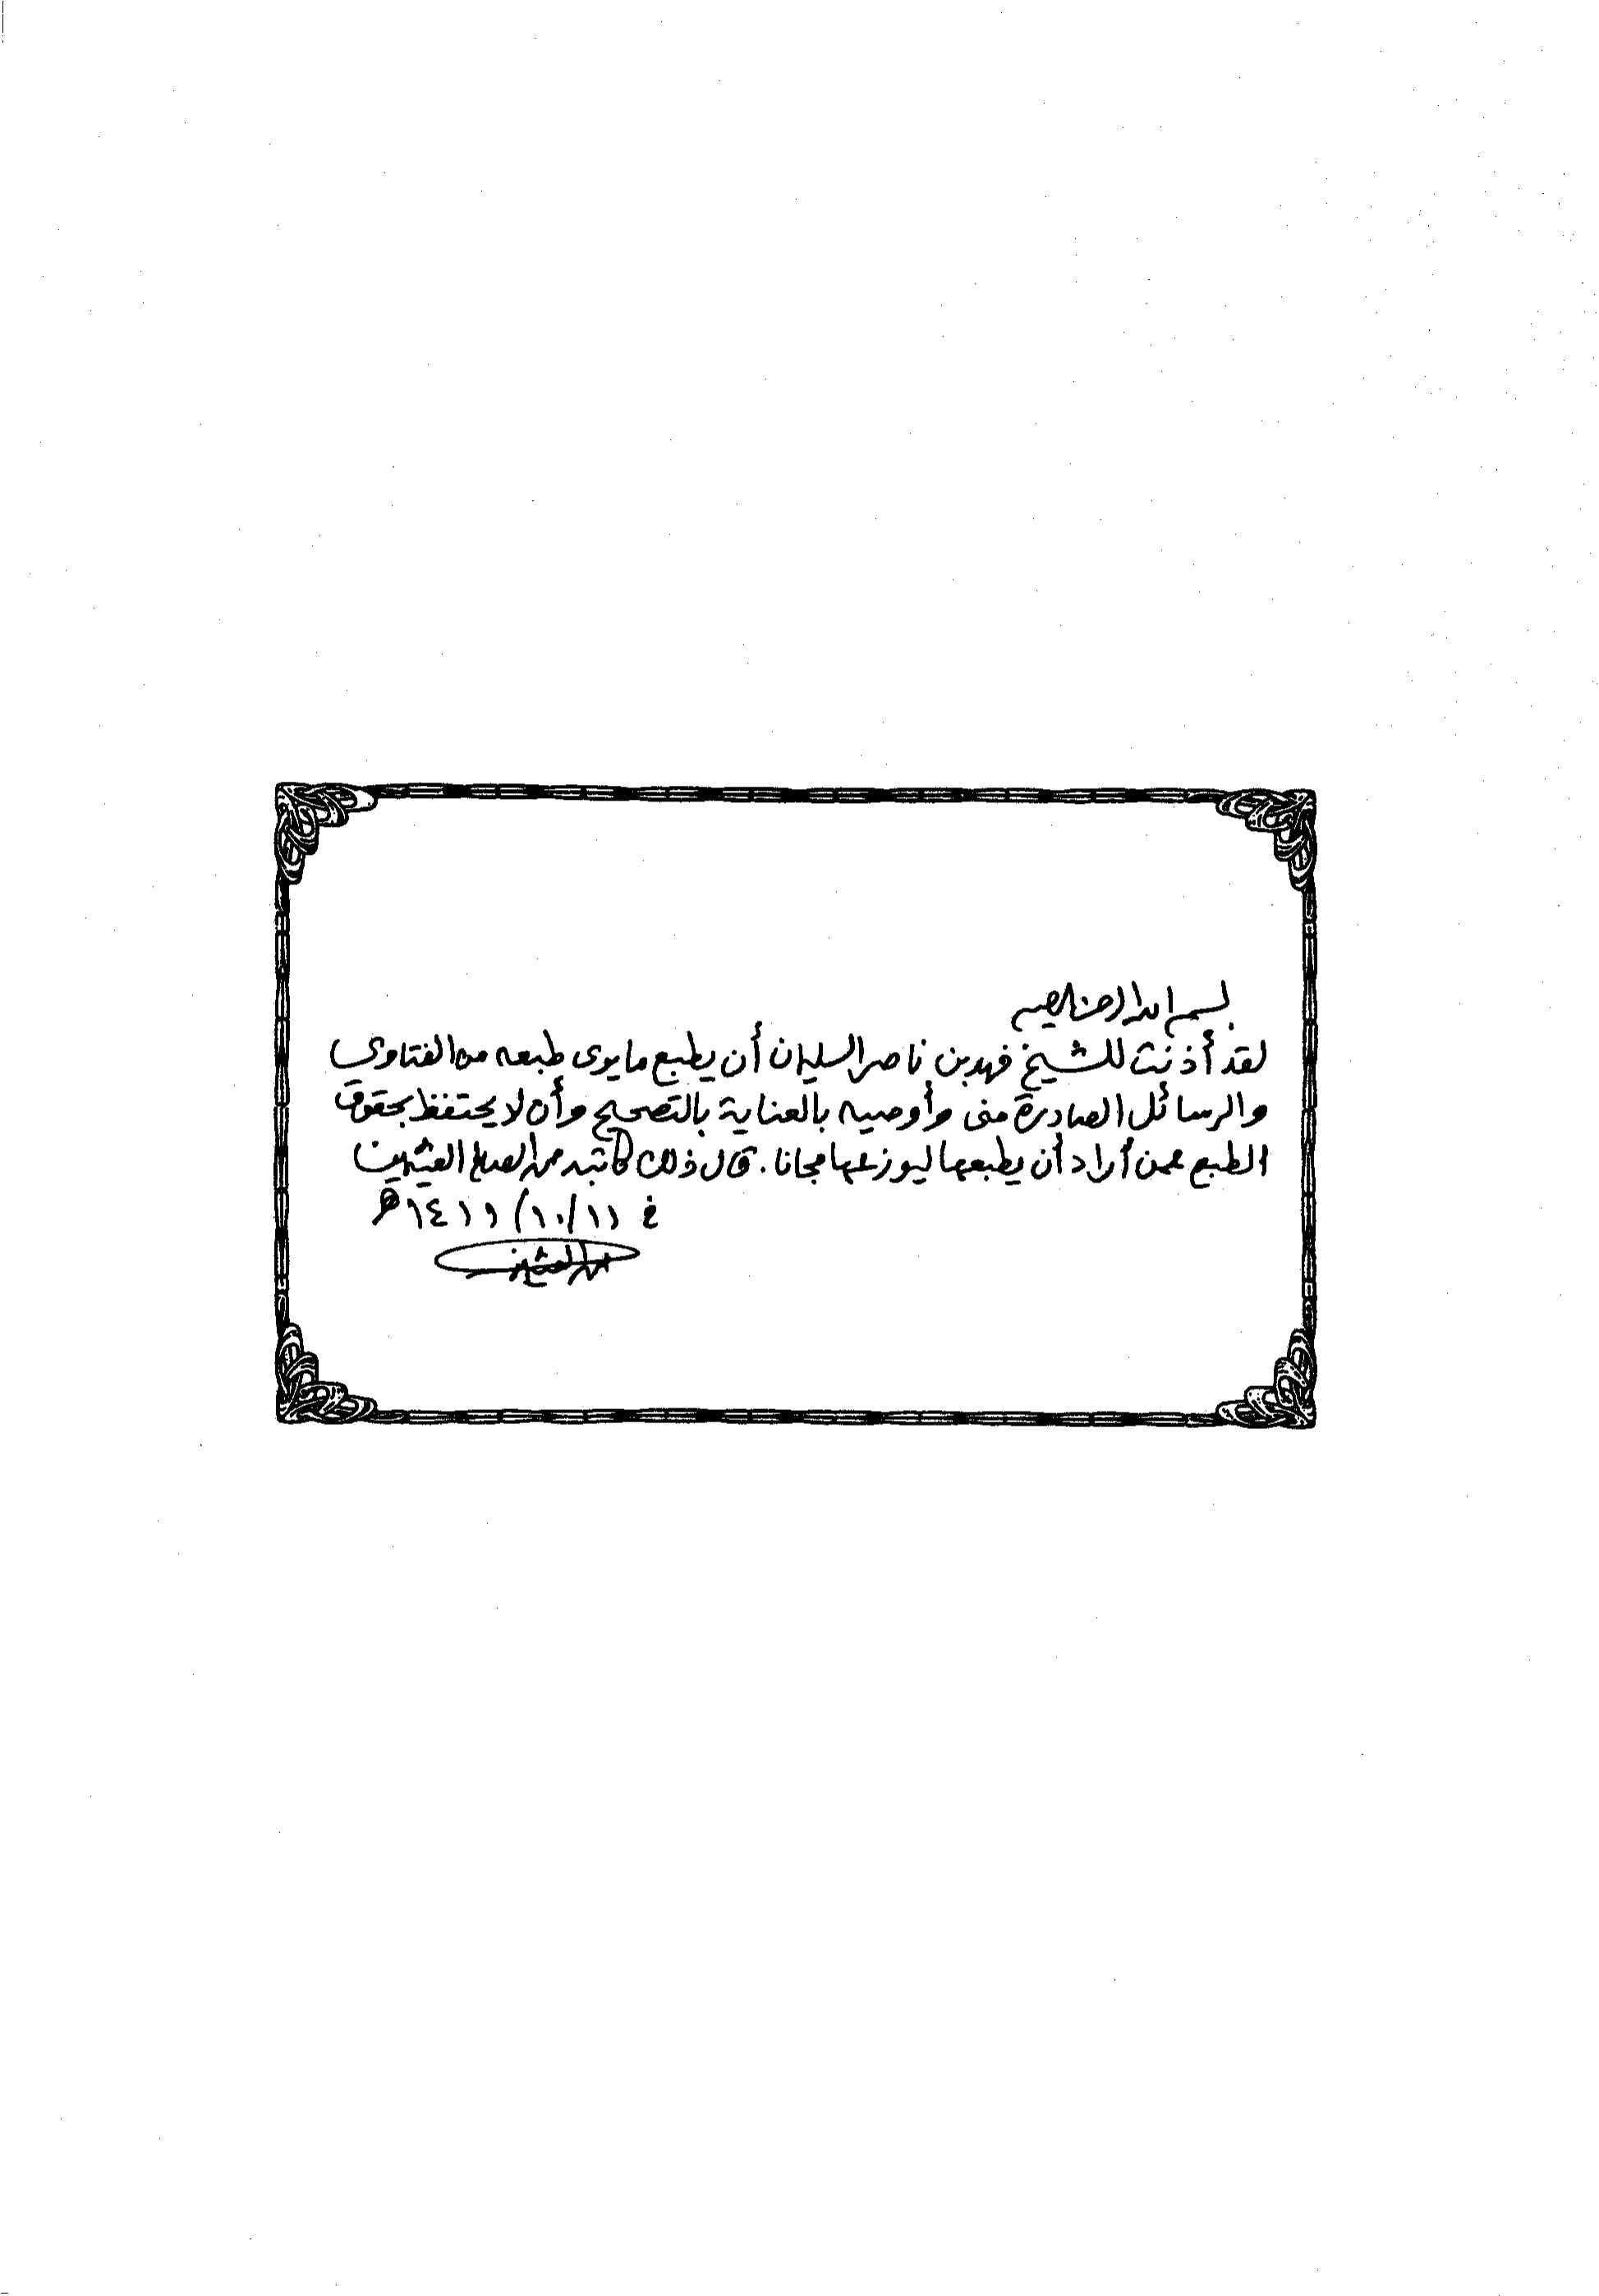 بسم الله الرحمن الرحيم
لقد أذنت للشيخ فهد بن ناصر السليمان أن يطبع ما يرى طبعه من الفتاوى
والرسائل الصادرة منى وأوصيه بالعناية بالتصحيح وأن لا يحتفظ بحقوق
الطبع عمن أراد أن يطبعها ليوزعها مجانا. قال ذلك كاتبه محمد الصالح العثيمين
في ١٠/١١/ ١٤١١هـ
محمد العثيمين